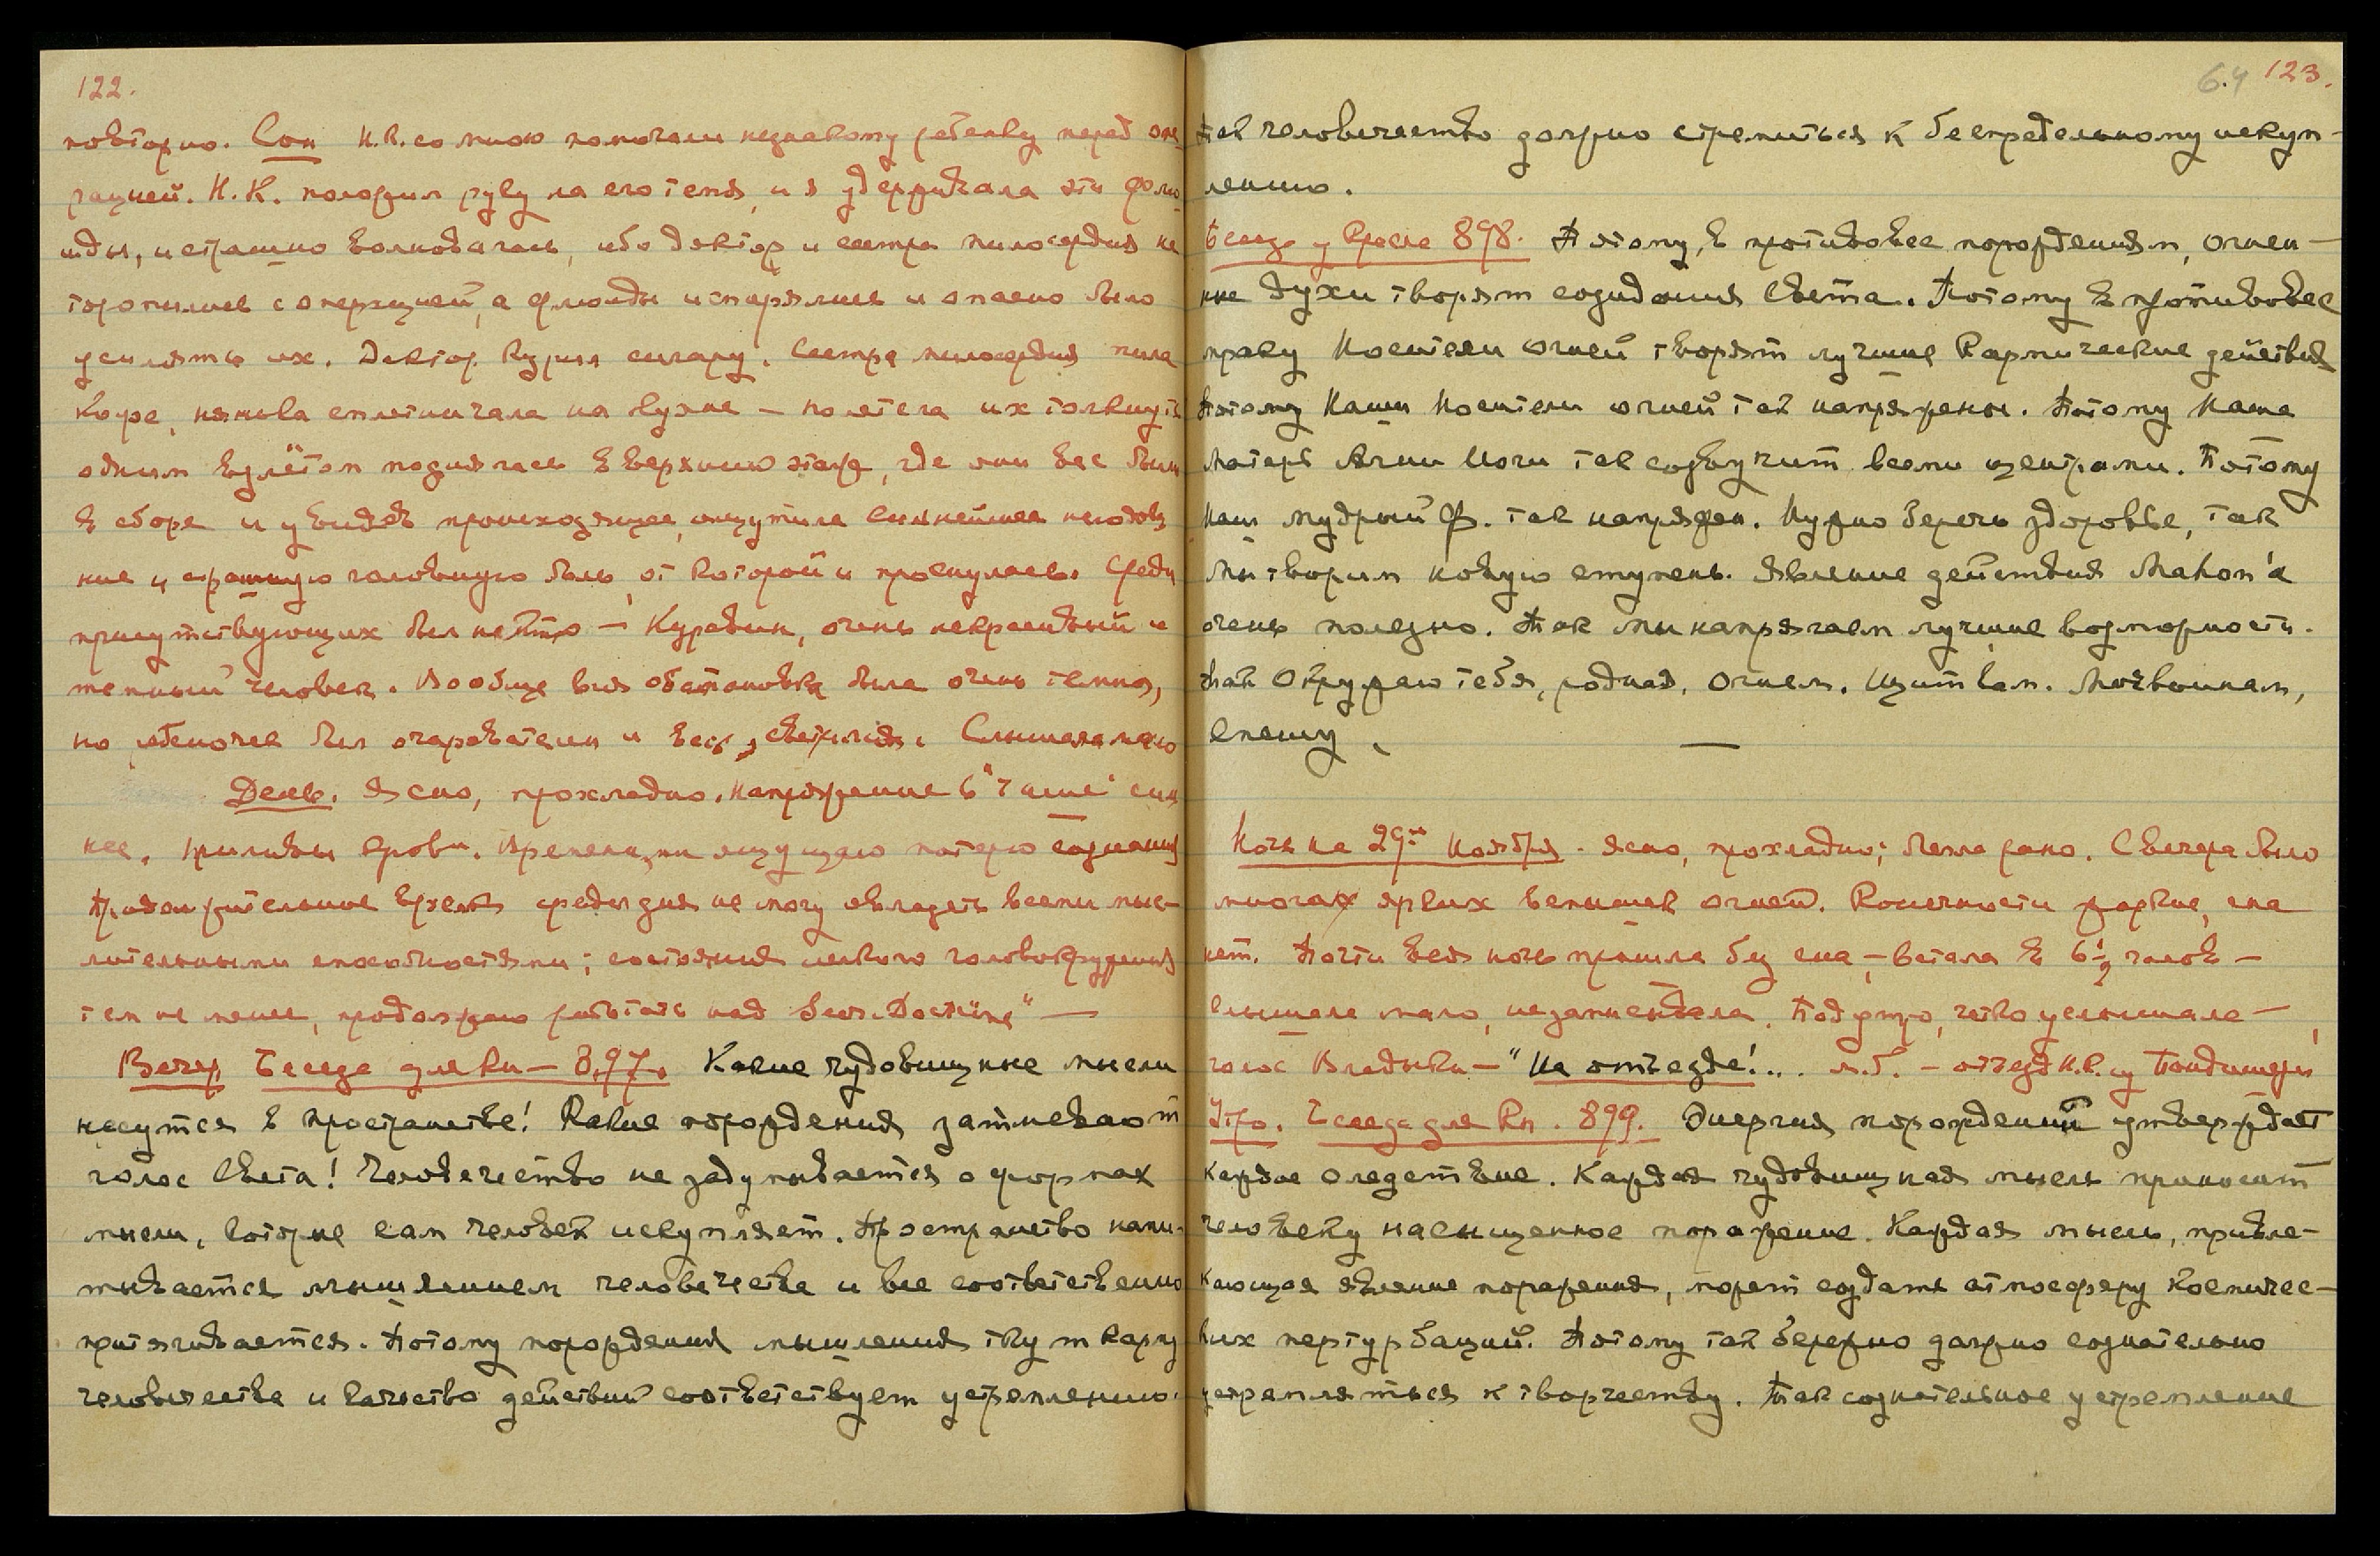 122.
повторно. Сон Н.К. со мною помогали незнакомому ребенку перед опе
рацией. Н.К. положил руку на его темя, и я удерживала эти флю
иды, и страшно волновалась, ибо доктор и сестра милосердия не
торопились с операцией, а флюиды испарялись и опасно было
усилять их. Доктор курил сигару. Сестра милосердия пила
кофе, нянька сплетничала на кухне — полетела их толкнуть
одним взлётом поднялась в верхнию этаж, где они все были
в сборе и увидев происходящее, ощутила сильнейшее негодова
ние и страшную головную боль, от которой и проснулась. Среди
присутствующих был некто — Курявин, очень некрасивый и
темный человек. Вообще вся обстановка была очень темная,
но ребеночек был очарователен и весь светился. Слышала мало
День. Ясно, прохладно. Напряжение в "Чаше" силь
нее. Приливы крови. Временами ощущаю потерю сознания
Продолжительное время среди дня не могу овладеть всеми мыс-
лительными способностями; состояния легкого головокружения
тем не менее, продолжаю работать над Secr. Doctrine" —
Вечер Беседа для Кн — 897. Какие чудовищные мысли
несутся в пространстве! Какие порождения затмевают
голос Света! Человечество не задумывается о формах
мысли, которые сам человек искупляет. Пространство напи-
тывается мышлением человечества и все соответственно
притягивается. Потому порождения мышления ткут карму
человечества и качество действий соответствует устремлению.
6.4 123.
Так человечество должно стремиться к беспредельному искуп-
лению.
Беседа у Кресла 898. Потому, в противовес порождениям, огнен-
ные духи творят созидания Света. Потому в противовес
мраку Носители огней творят лучшие Кармические действия
Потому Наши Носители огней так напряжены. Потому Наша
Матерь Агни Йоги так созвучит всеми центрами. Потому
Наш мудрый Ф. так напряжен. Нужно беречь здоровье, так
Мы творим новую ступень. Явление действия Mahon'а
очень полезно. Так мы напрягаем лучшие возможности.
Так Окружаю тебя, родная, Огнем. Щит Вам. Мочь воинам,
Спешу.
Ночь на 29ое Ноября. Ясно, прохладно; легла рано. С вечера было
много ярких вспышек огней. Конечности жаркие, сна
нет. Почти вся ночь прошла без сна, — встала в 6½ часов —
Слышала мало, не записывала. Под утро, четко услышала —
голос Владыки — "На отъезде!... м.б. — отъезд Н.К. из Пондишери
Утро. Беседа для Кн. 899. Энергия порождений утверждает
каждое следствие. Каждая чудовищная мысль приносит
человеку насыщенное поражение. Каждая мысль, привле-
кающая явление поражения, может создать атмосферу космичес-
ких пертурбаций. Потому так бережно должно сознательно
устремляться к творчеству. Так сознательное устремление